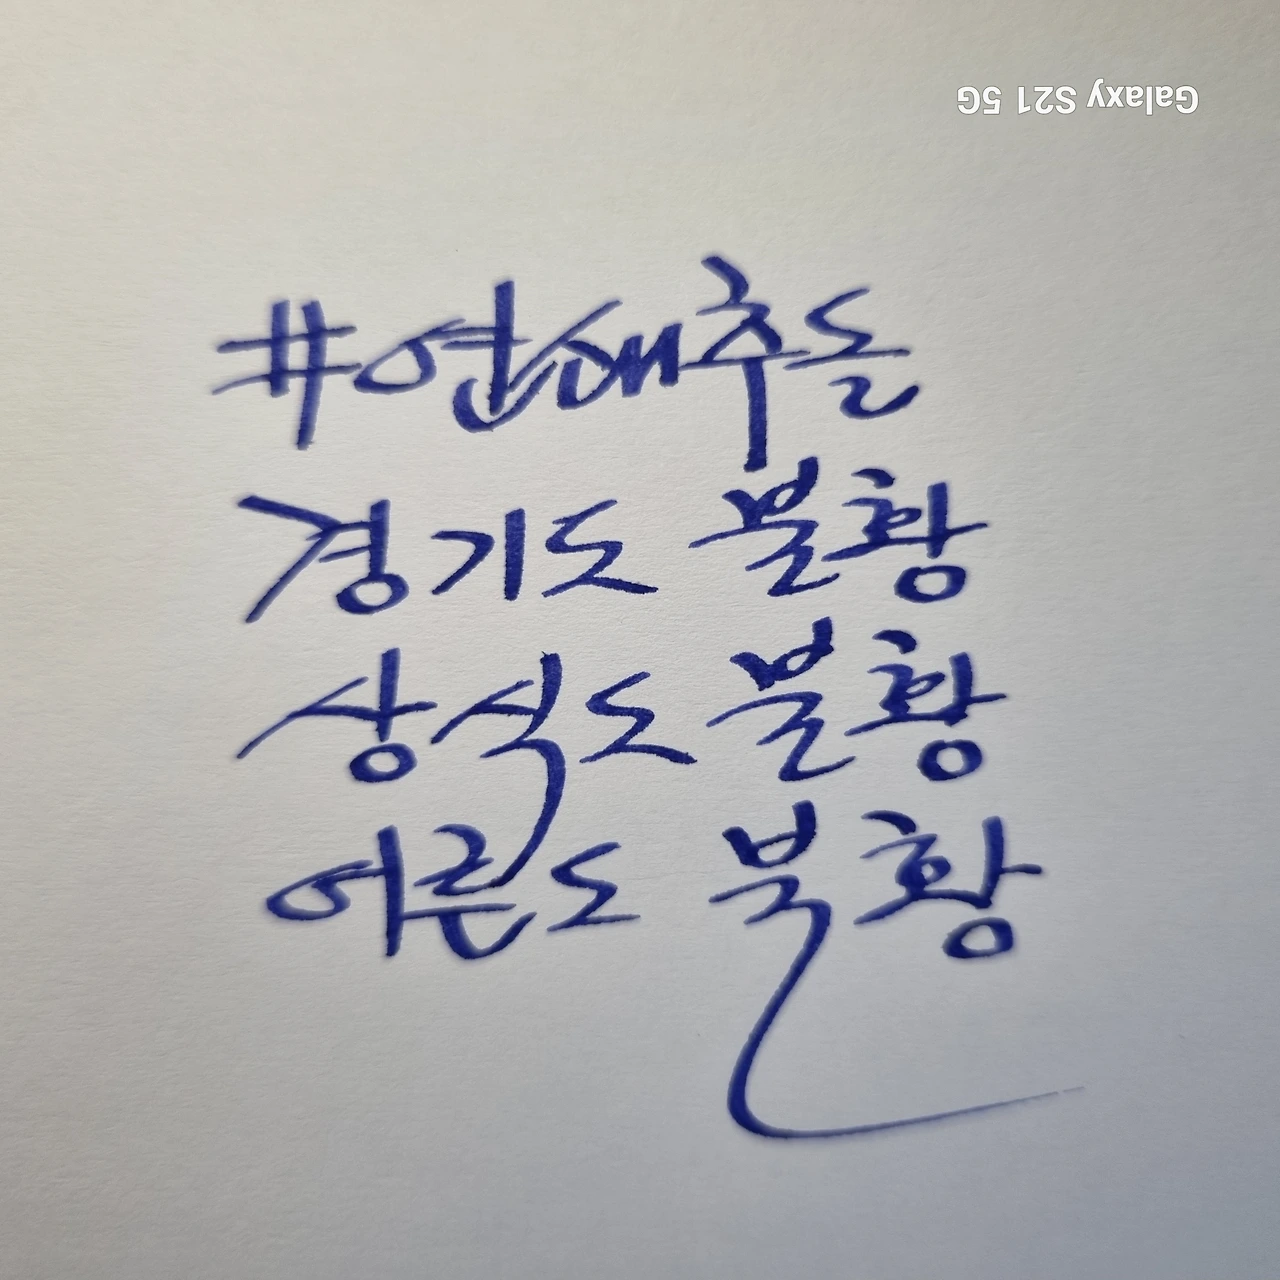 Galaxy S21 5G
#연애추돌
경기도 불황
상식도 불황
어른도 불황